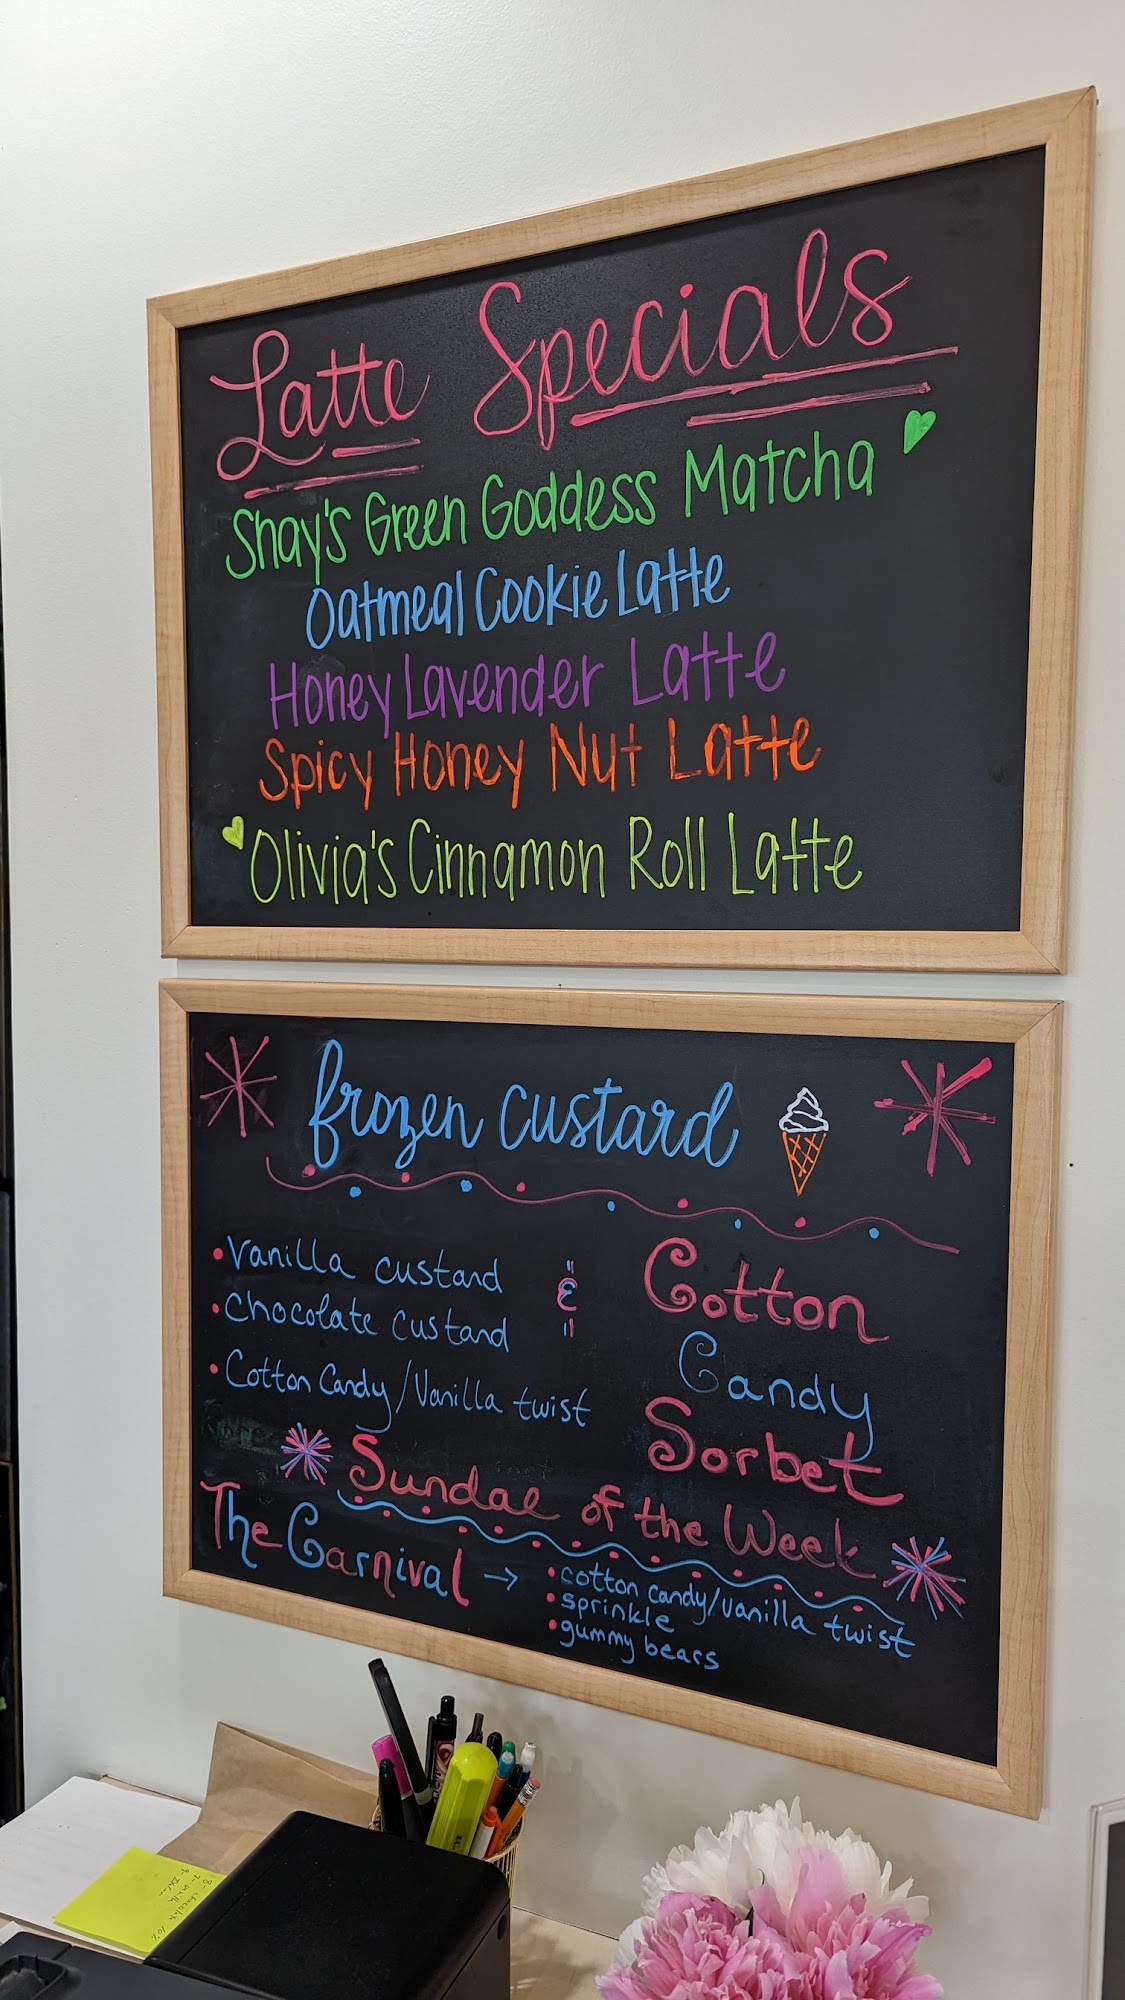 Latte Specials
Shay's Green Goddess Matcha
Oatmeal Cookie Latte
Honey Lavender Latte
Spicy Honey Nut Latte
Olivia's Cinnamon Roll Latte
frozen custard
• Vanilla custard
• Chocolate custard
• Cotton Candy/Vanilla twist
&
Cotton
Candy
Sorbet
Sundae of the Week
The Carnival →
• cotton candy/vanilla twist
• sprinkle
• gummy bears